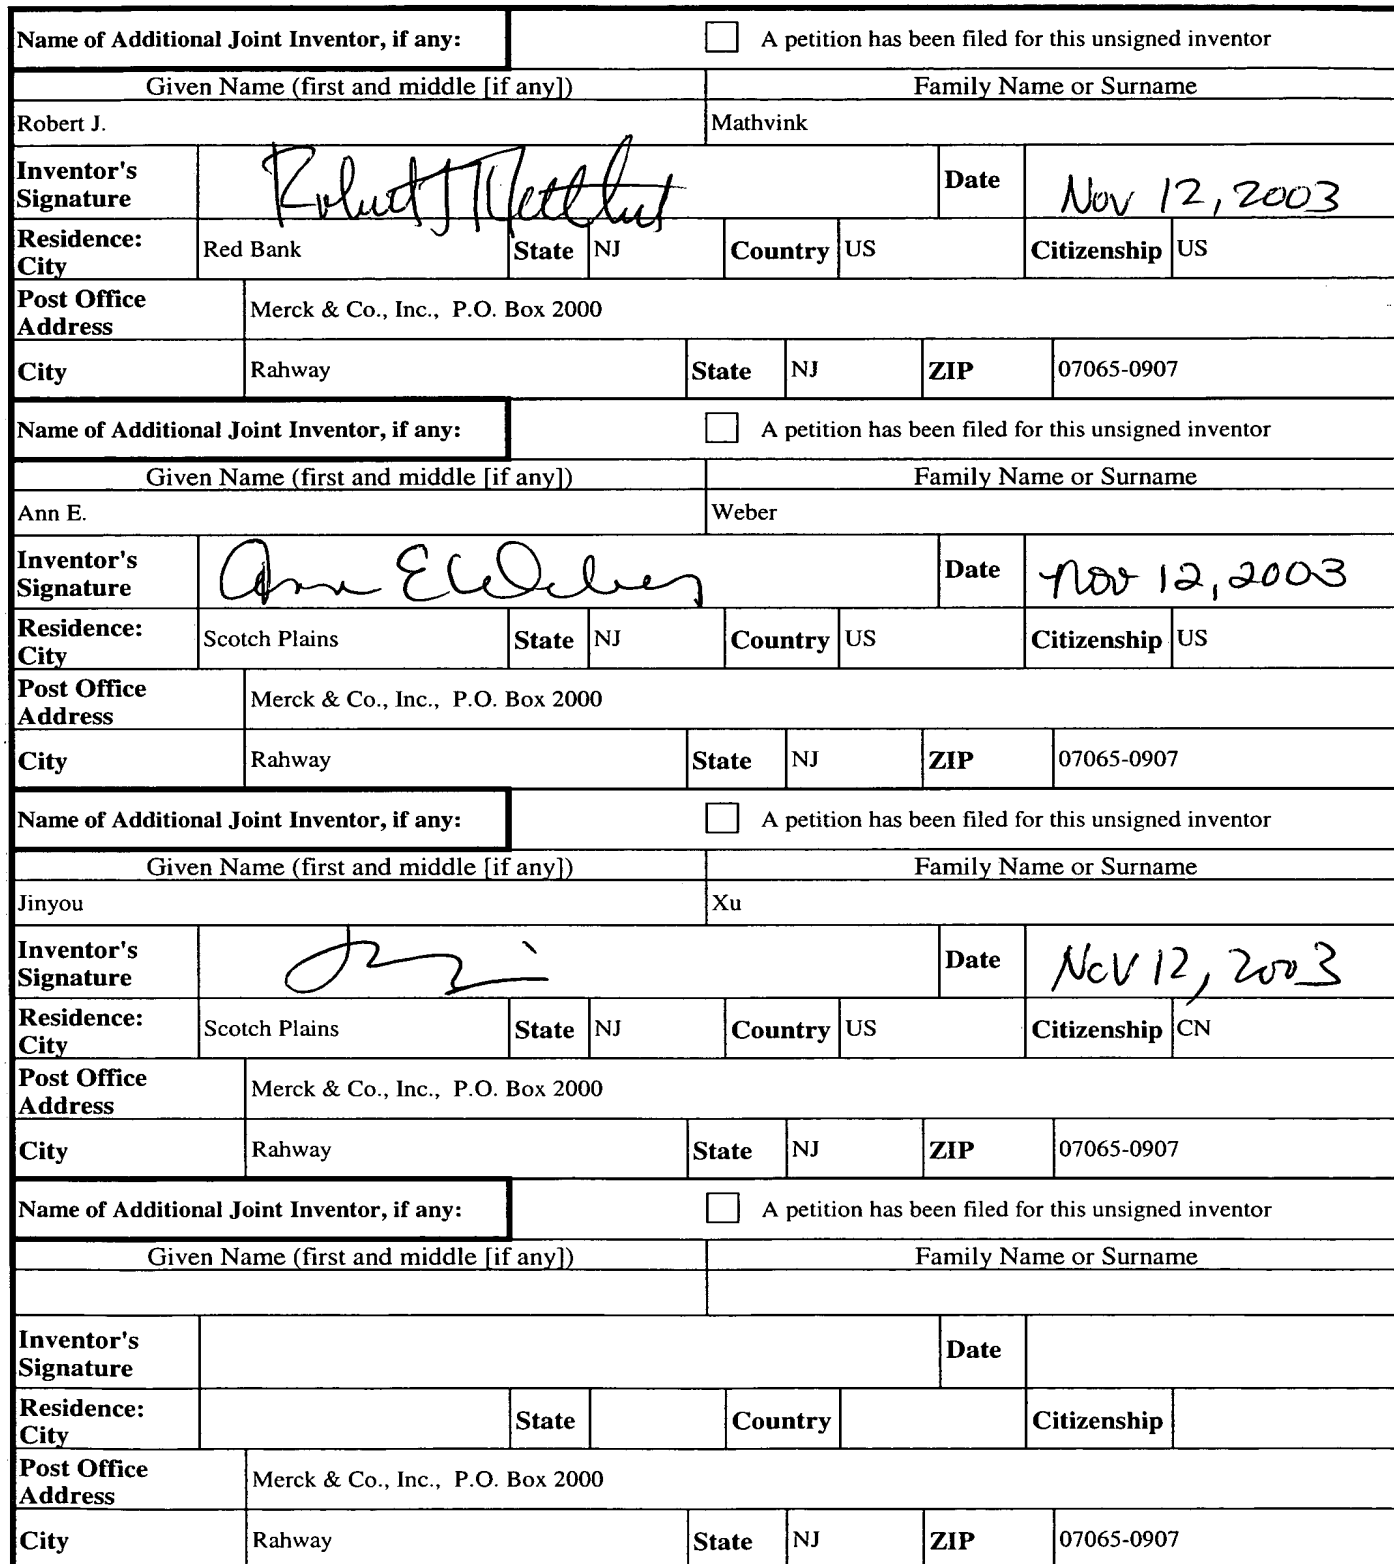 Name of Additional Joint Inventor, if any: A petition has been filed for this unsigned inventor
Given Name (first and middle [if any]) Family Name or Surname
Robert J. Mathvink
Inventor's Signature Robert J Mathvink Date Nov 12, 2003
Residence: City Red Bank State NJ Country US Citizenship US
Post Office Address Merck & Co., Inc., P.O. Box 2000
City Rahway State NJ ZIP 07065-0907
Name of Additional Joint Inventor, if any: A petition has been filed for this unsigned inventor
Given Name (first and middle [if any]) Family Name or Surname
Ann E. Weber
Inventor's Signature Ann E Weber Date Nov 12, 2003
Residence: City Scotch Plains State NJ Country US Citizenship US
Post Office Address Merck & Co., Inc., P.O. Box 2000
City Rahway State NJ ZIP 07065-0907
Name of Additional Joint Inventor, if any: A petition has been filed for this unsigned inventor
Given Name (first and middle [if any]) Family Name or Surname
Jinyou Xu
Inventor's Signature Date Nov 12, 2003
Residence: City Scotch Plains State NJ Country US Citizenship CN
Post Office Address Merck & Co., Inc., P.O. Box 2000
City Rahway State NJ ZIP 07065-0907
Name of Additional Joint Inventor, if any: A petition has been filed for this unsigned inventor
Given Name (first and middle [if any]) Family Name or Surname
Inventor's Signature Date
Residence: City State Country Citizenship
Post Office Address Merck & Co., Inc., P.O. Box 2000
City Rahway State NJ ZIP 07065-0907